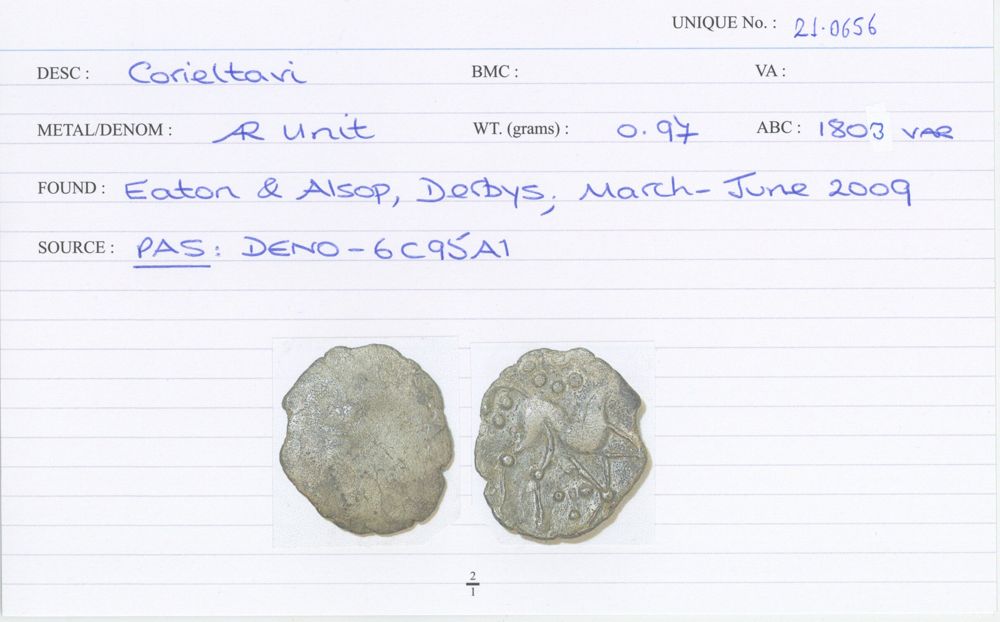 UNIQUE No. : 21.0656
DESC : Corieltavi BMC : VA :
METAL/DENOM : AR Unit WT. (grams) : 0.97 ABC : 1803 VAR
FOUND : Eaton & Alsop, Derbys; March-June 2009
SOURCE : PAS: DENO-6C95A1
2
1